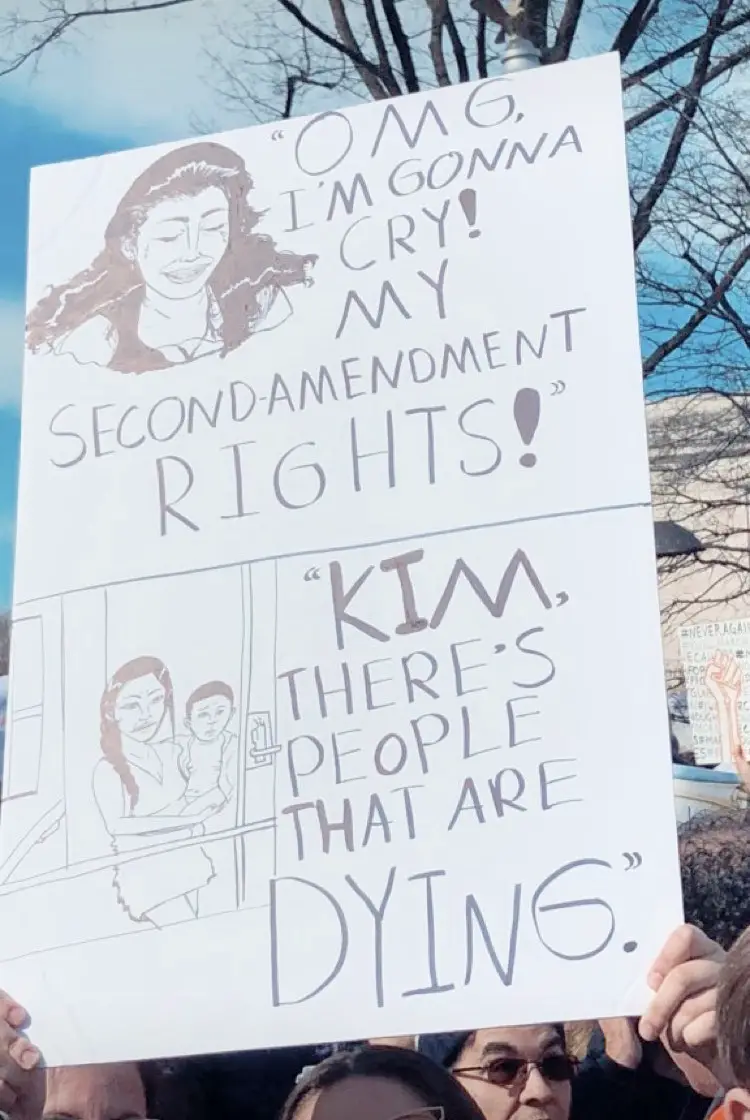 "OMG,
I'M GONNA
CRY!
MY
SECOND-AMENDMENT
RIGHTS!"
"KIM,
THERE'S
PEOPLE
THAT ARE
DYING."
#NEVERAGAIN